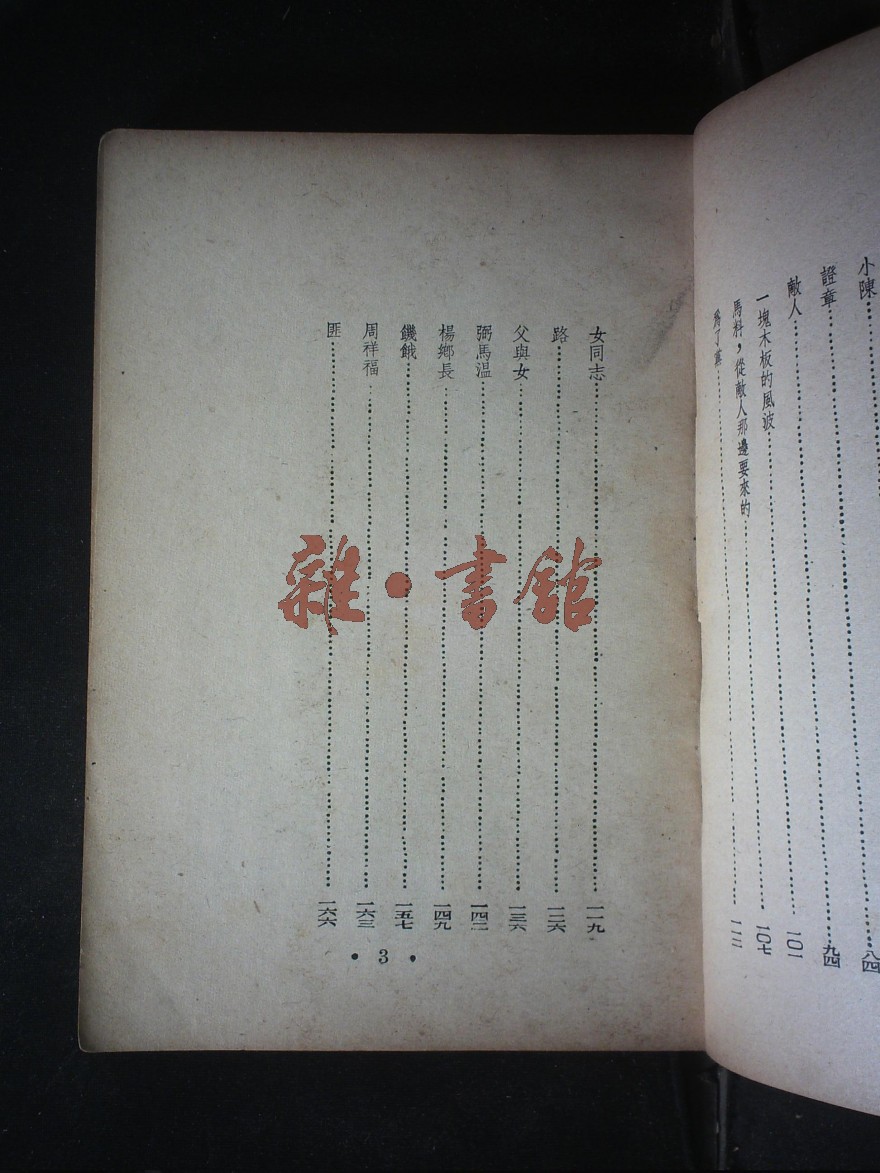 小陳
證章……八四
敵人……九四
一塊木板的風波……一〇一
馬料，從敵人那邊要來的……一〇七
爲了黨……一一二
女同志……一一九
路……一二六
父與女……一三六
弼馬溫……一四二
楊鄉長……一四九
饑餓……一五七
周祥福……一六三
匪……一六六
• 3 •
雜•書館